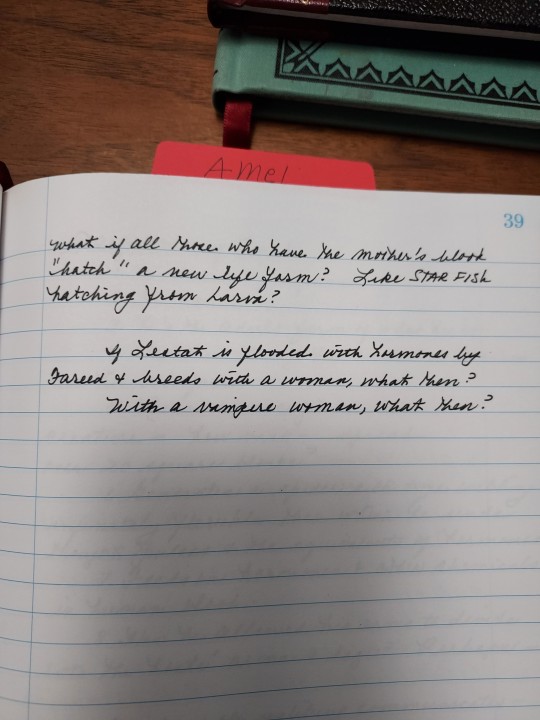 Amel
39
What if all those who have the mother's blood
"hatch" a new life form? Like STAR FISH
hatching from larva?
If Lestat is flooded with hormones by
Fareed & breeds with a woman, what then?
With a vampire woman, what then?